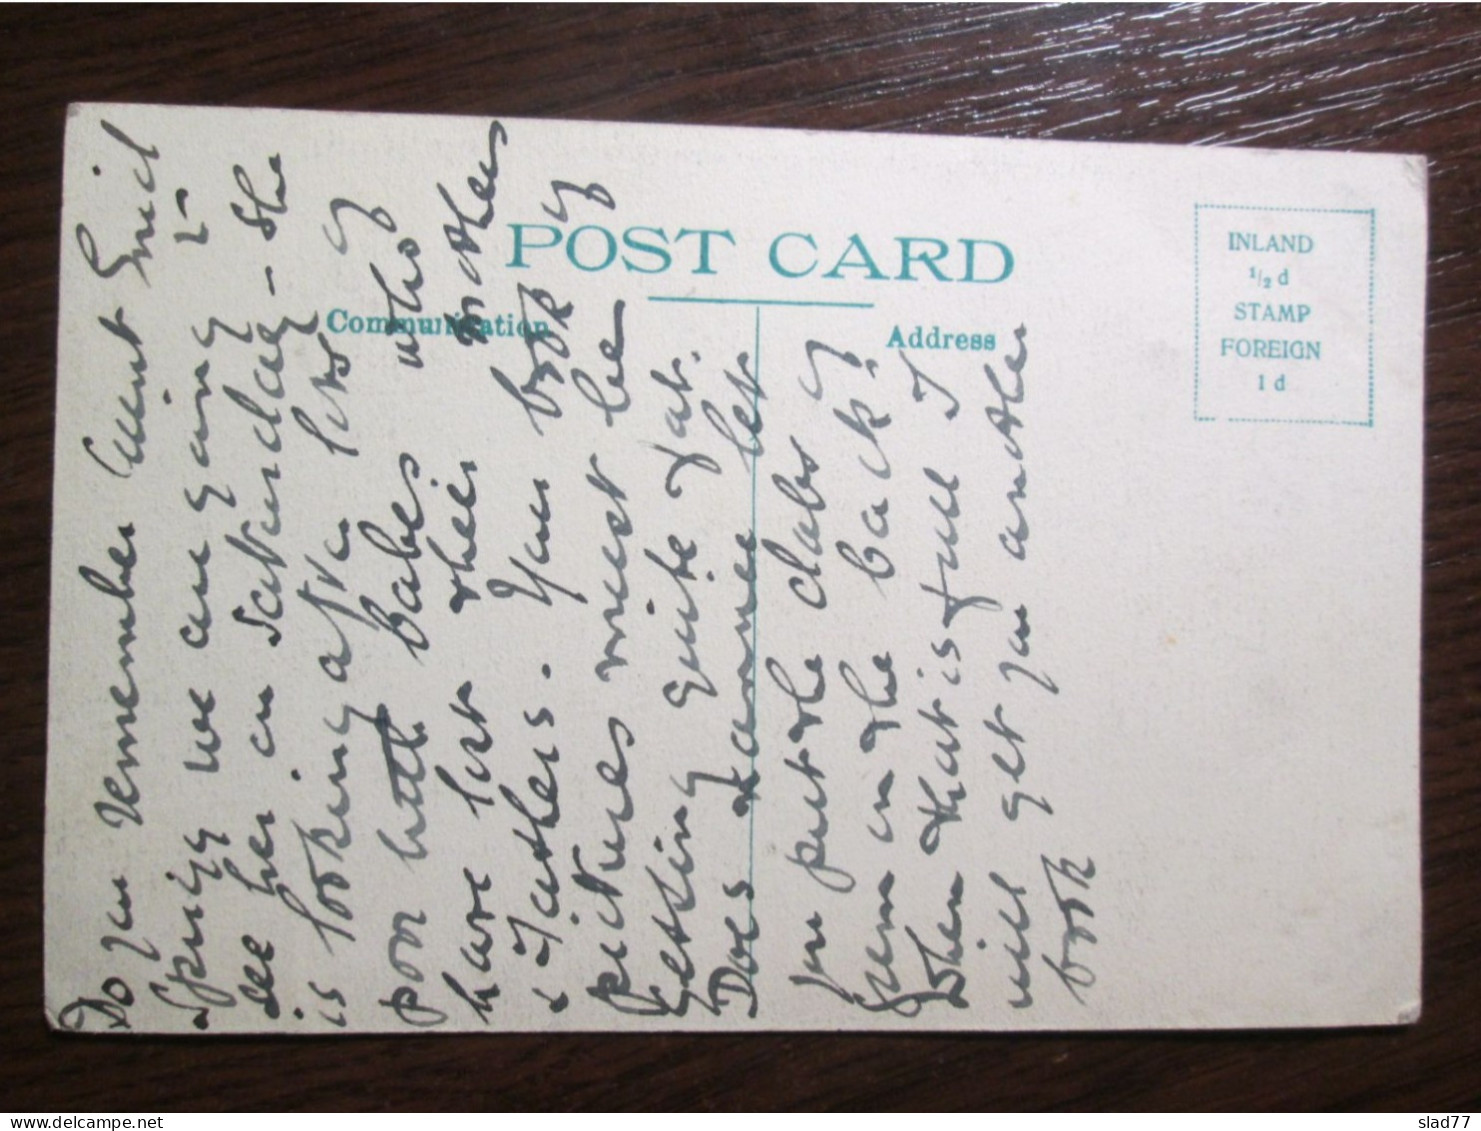 POST CARD
Communication
Address
INLAND
1/2 d
STAMP
FOREIGN
1 d
Do you remember Aunt Enid
Spring we are going to
see her on Saturday - she
is looking after lots of
poor little babes who
have lost their mothers
& Fathers. Your book of
pictures must be
getting quite fat.
Does Nannie let
you put the dabs of
gum on the back?
When that is full I
will get you another
book
slad77 - delcampe.net